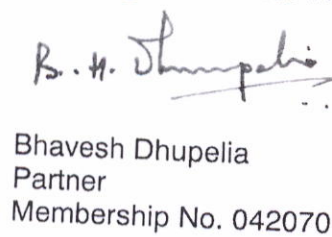 B. H. Dhupelia
Bhavesh Dhupelia
Partner
Membership No. 042070